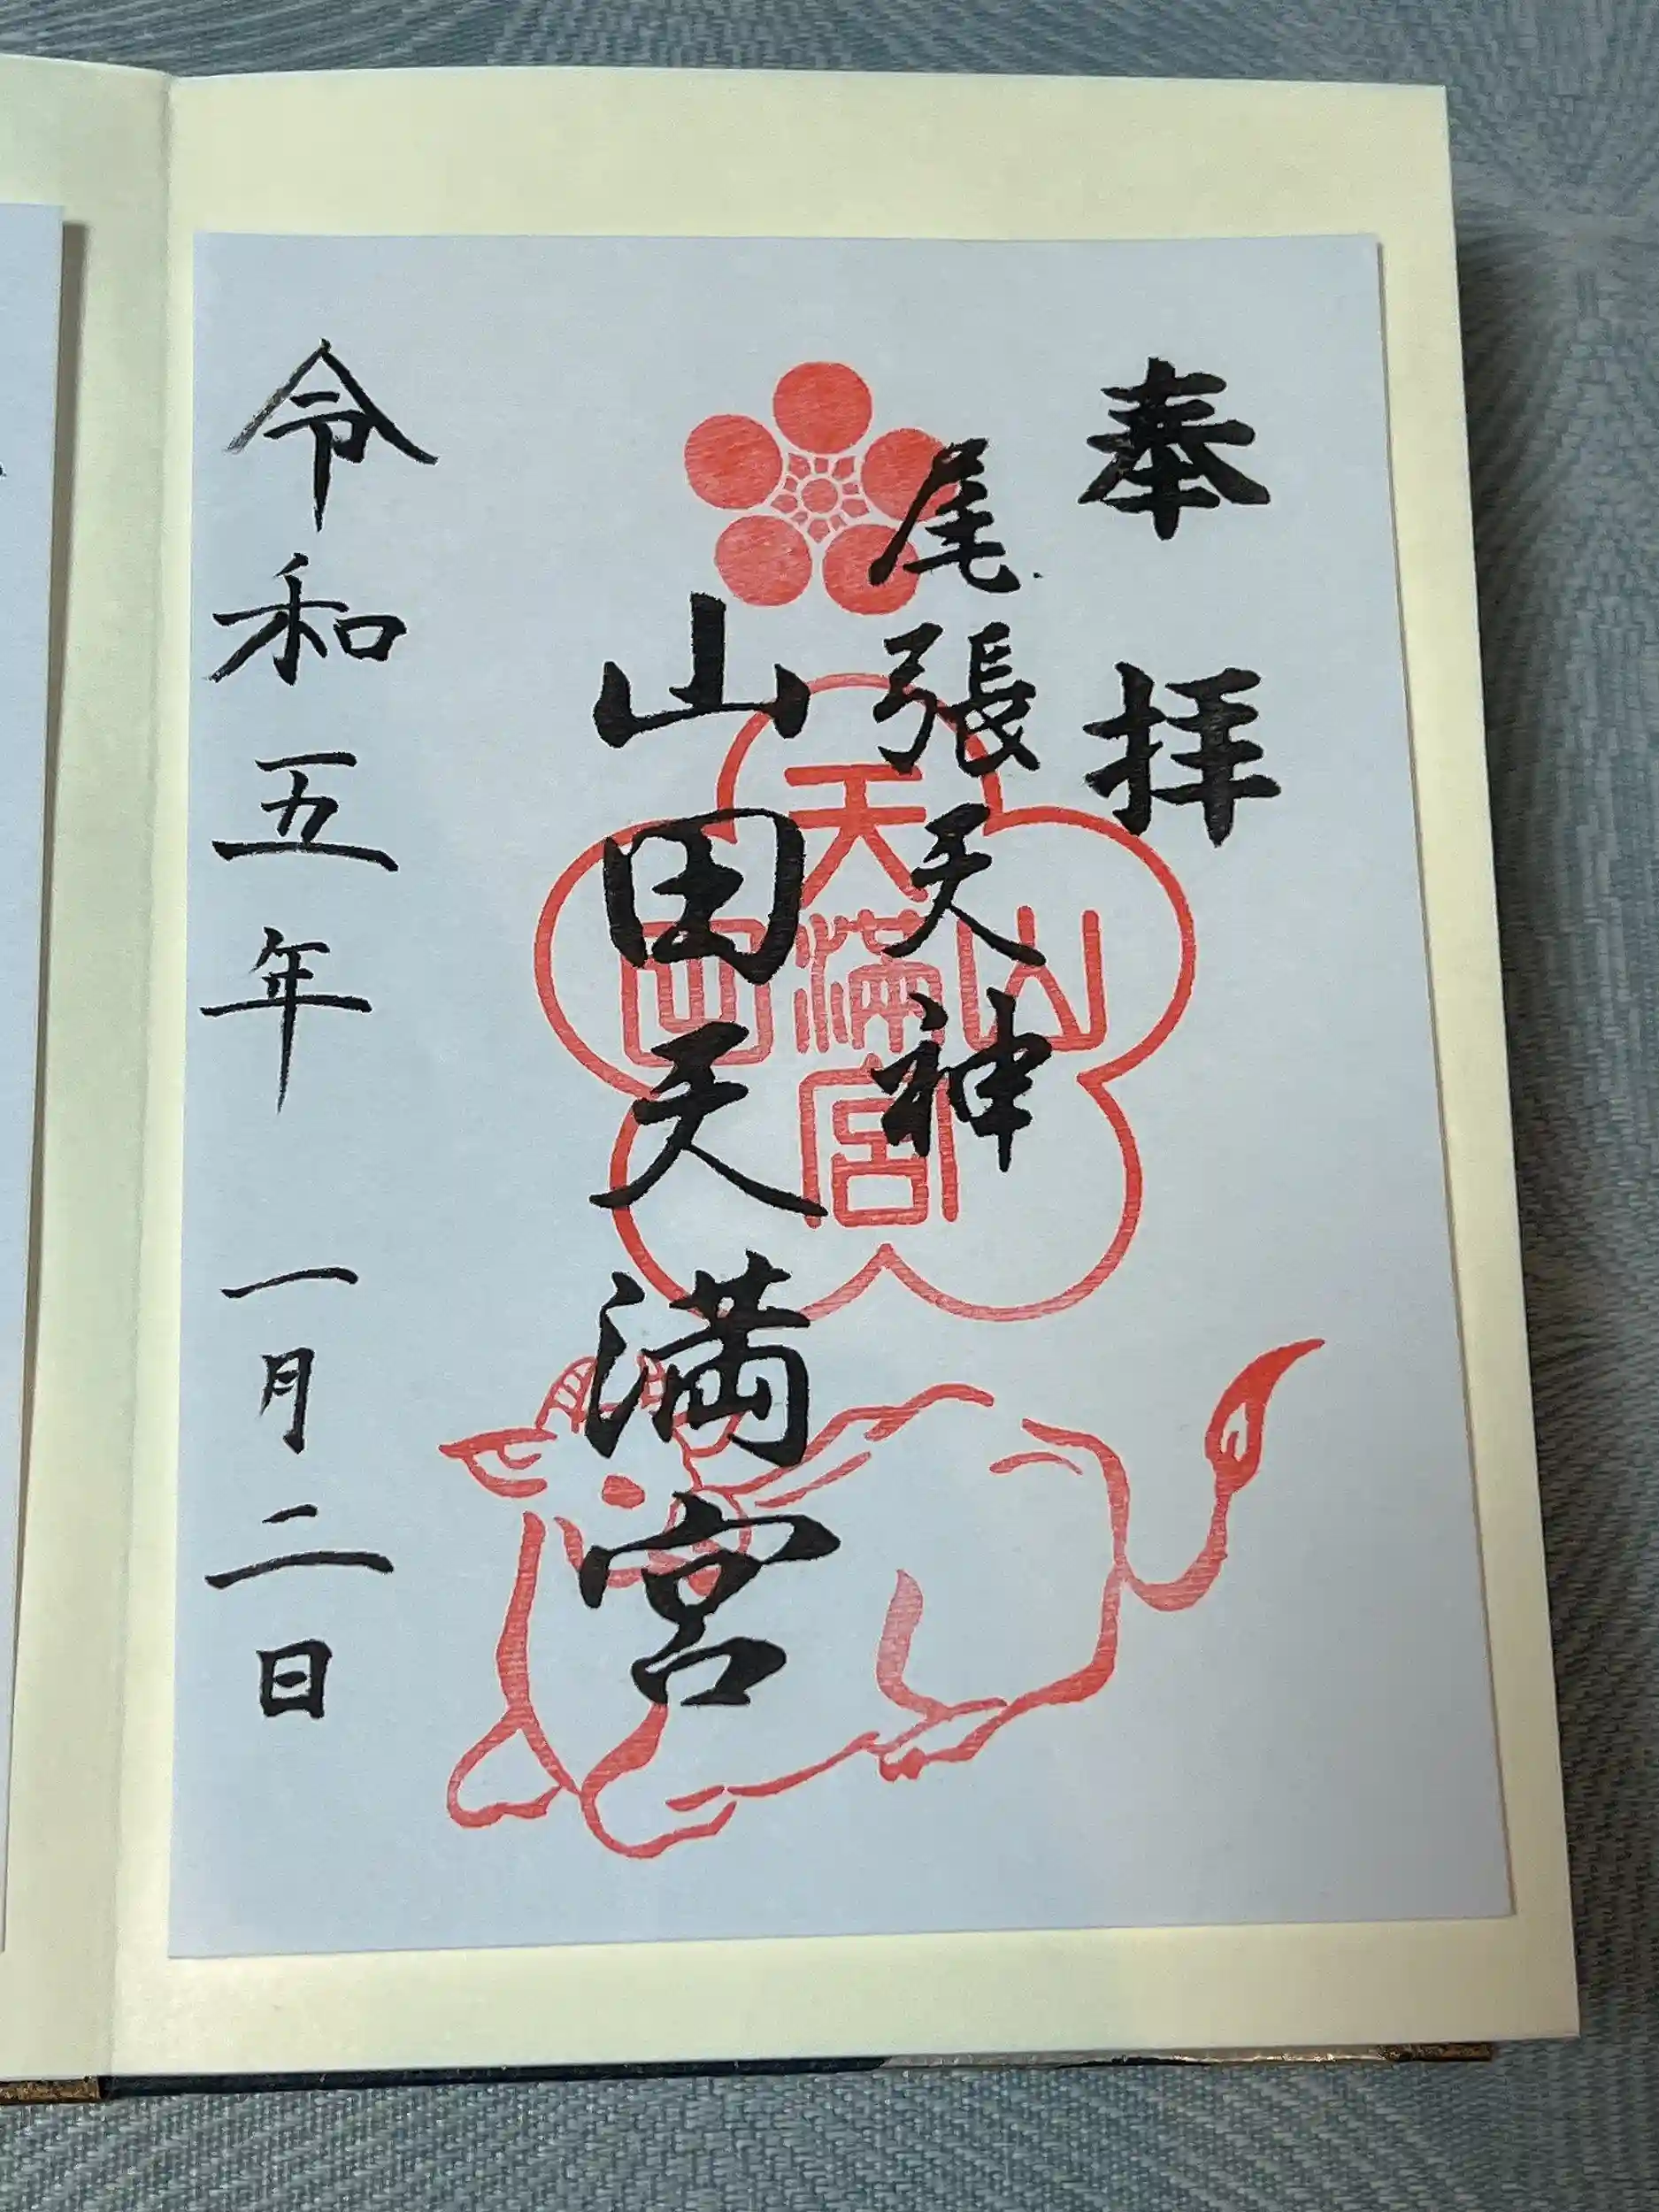 奉拝
尾張天神
山田天満宮
天
山満田
宮
令和五年一月二日